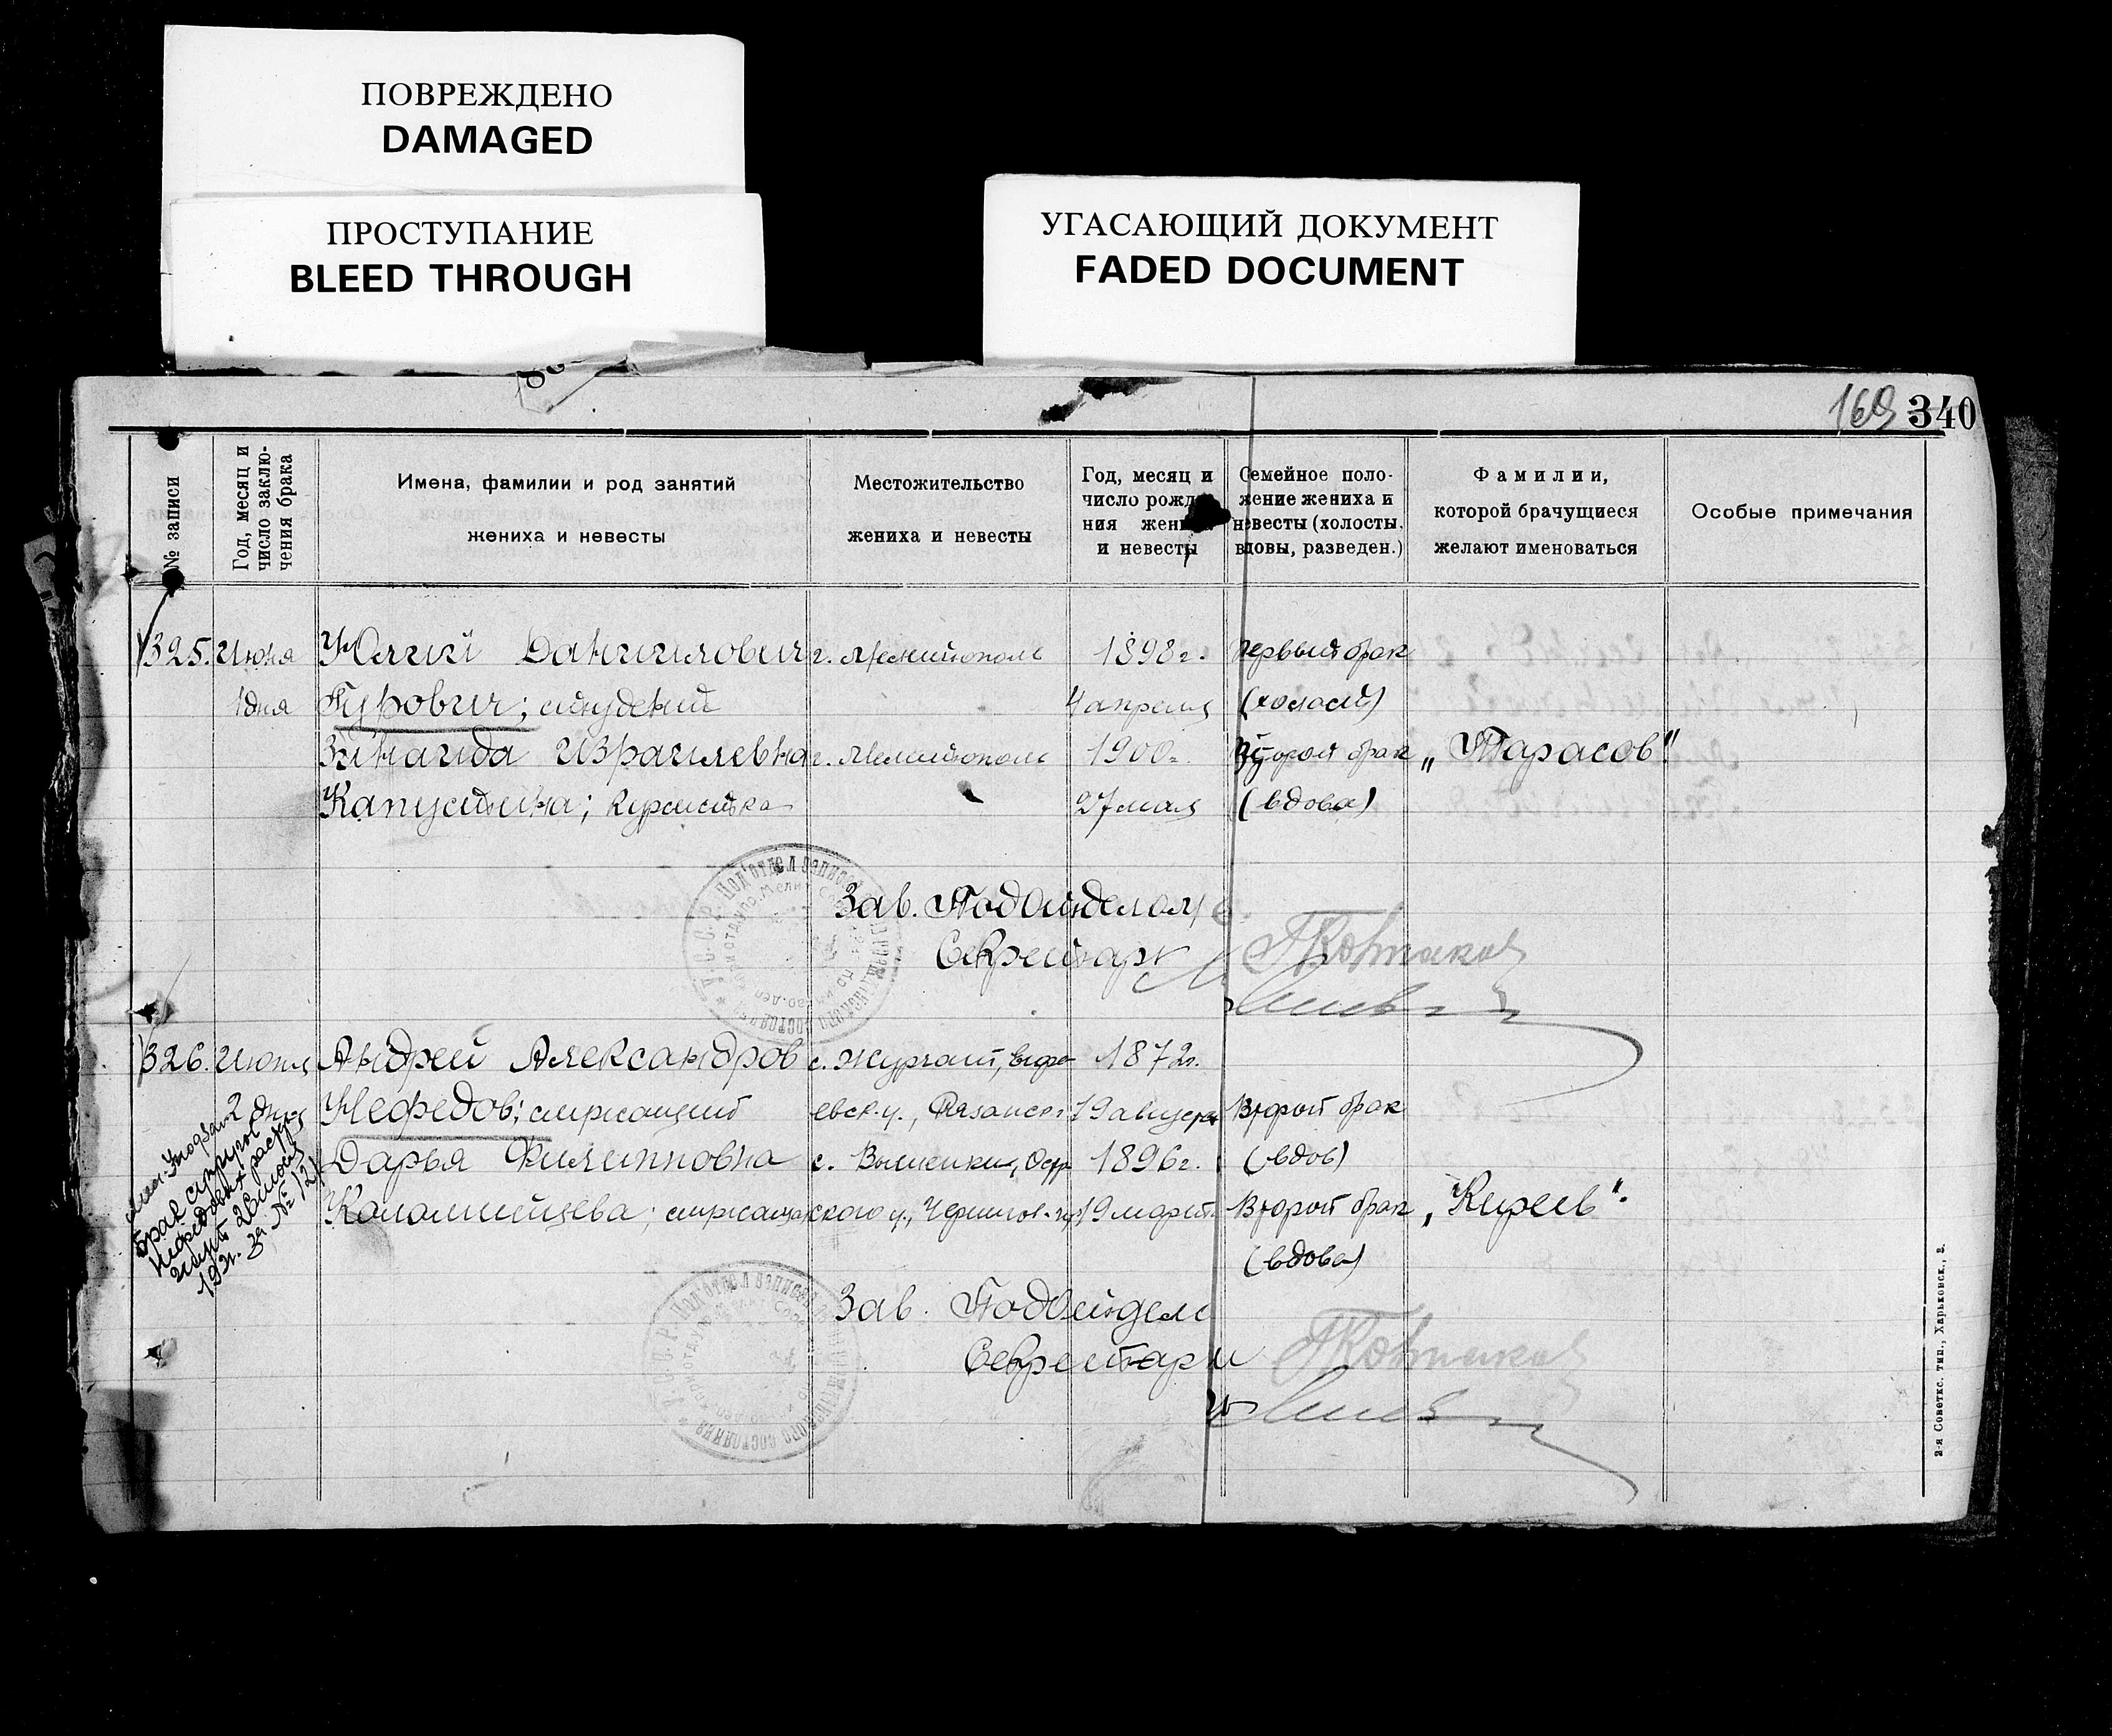 ПОВРЕЖДЕНО
DAMAGED
ПРОСТУПАНИЕ
BLEED THROUGH
УГАСАЮЩИЙ ДОКУМЕНТ
FADED DOCUMENT
169 340
№ записи
Год, месяц и число заклю-
чения брака
Имена, фамилии и род занятий
жениха и невесты
Местожительство
жениха и невесты
Год, месяц и
число рожд
ния жен
и невесты
Семейное поло-
жение жениха и
невесты (холосты,
вдовы, разведен.)
Фамилии,
которой брачущиеся
желают именоваться
Особые примечания
325. Июня Юлий Даниилович г. Мелитополь 1898 г. первый брак
1 дня Гурович; студент 4 апреля (холост)
Зинаида Израилевна г. Мелитополь 1900 г. Второй брак „Тарасов"
Капустина; курсистка 27 мая (вдова)
Зав. Подотделом
Секретарь
326. Июня Андрей Александров с. 1872 г.
2 дня Нефедов; служащий евск. у., Рязанск. 19 августа Второй брак
Дарья Филипповна с. 1896 г. (вдов)
Коломийцева; служащая ского у., Чернигов. 19 март. Второй брак „Киреев".
(вдова)
Зав. Подотдел
Секретарь
Брак супругов
193 г. за № 121
2-я Советск. тип., Харьковск., 3.